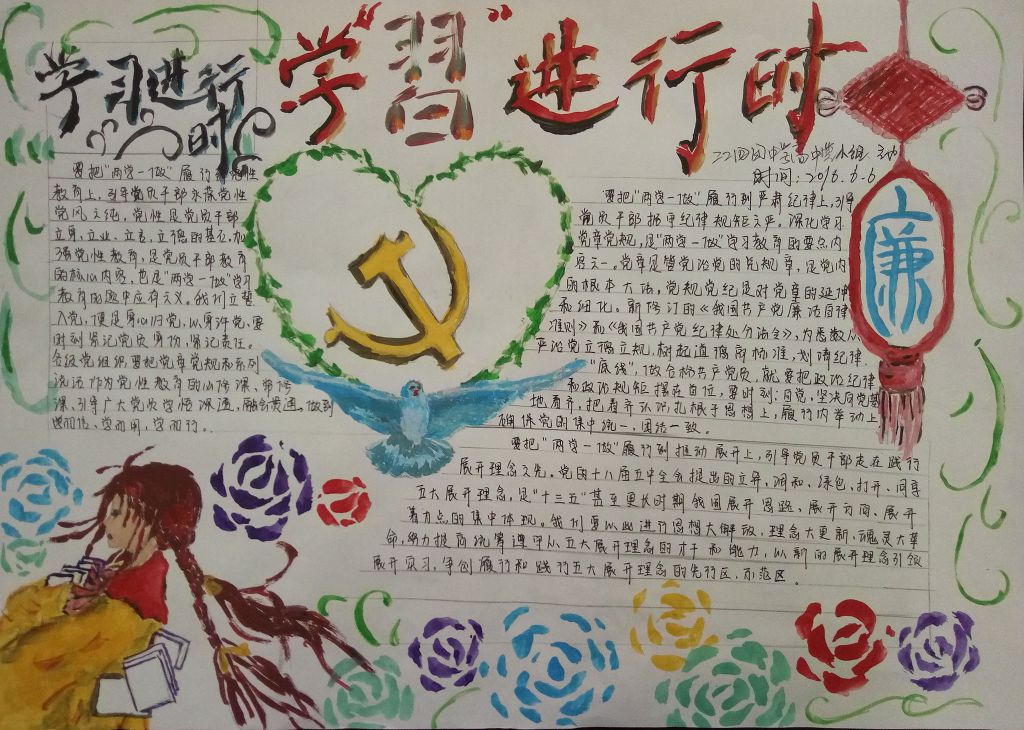 学习进行时
学“習”进行时
时间:2016.6.6
廉
要把“两学一做”履行到党性
教育上,引导党员干部永葆党性
党风之纯。党性是党员干部
立身、立业、立言、立德的基石,加
强党性教育,是党员干部教育
的核心内容,也是“两学一做”学习
教育的题中应有之义。我们立誓
入党,便是身心归党,以身许党,要
时刻紧记党员身份,紧记责任。
各级党组织要把党章党规和系列
说话作为党性教育的必修课、常修
课,引导广大党员学悟深透,融会贯通。做到
学而用,学而行。
要把“两学一做”履行到严肃纪律上,引导
党员干部扼守纪律规矩之严。深化学习
党章党规,是“两学一做”学习教育的要点内
容之一。党章是管党治党的总规章,是党内
的根本大法,党规党纪是对党章的延伸
和细化。新修订的《我国共产党廉洁自律
准则》和《我国共产党纪律处分法令》,为悉数从
严治党立德立规,树起道德高标准,划清纪律
“底线”。做合格共产党员,就要把政治纪律
和政治规矩摆在首位,要时刻、自觉、坚决向党基
地看齐,把看齐认识扎根于思想上,履行内举动上
确保党的集中统一、团结一致。
要把“两学一做”履行到推动展开上,引导党员干部走在践行
展开理念之先。党的十八届五中全会提出的立异、调和、绿色、打开、同享
五大展开理念,是“十三五”甚至更长时期我国展开思路、展开方向、展开
着力点的集中体现。我们要以此进行思想大解放、理念大更新、魂灵大革
命,努力提高统筹遵守从五大展开理念的才干和能力,以新的展开理念引领
展开实习,争创履行和践行五大展开理念的先行区、示范区。